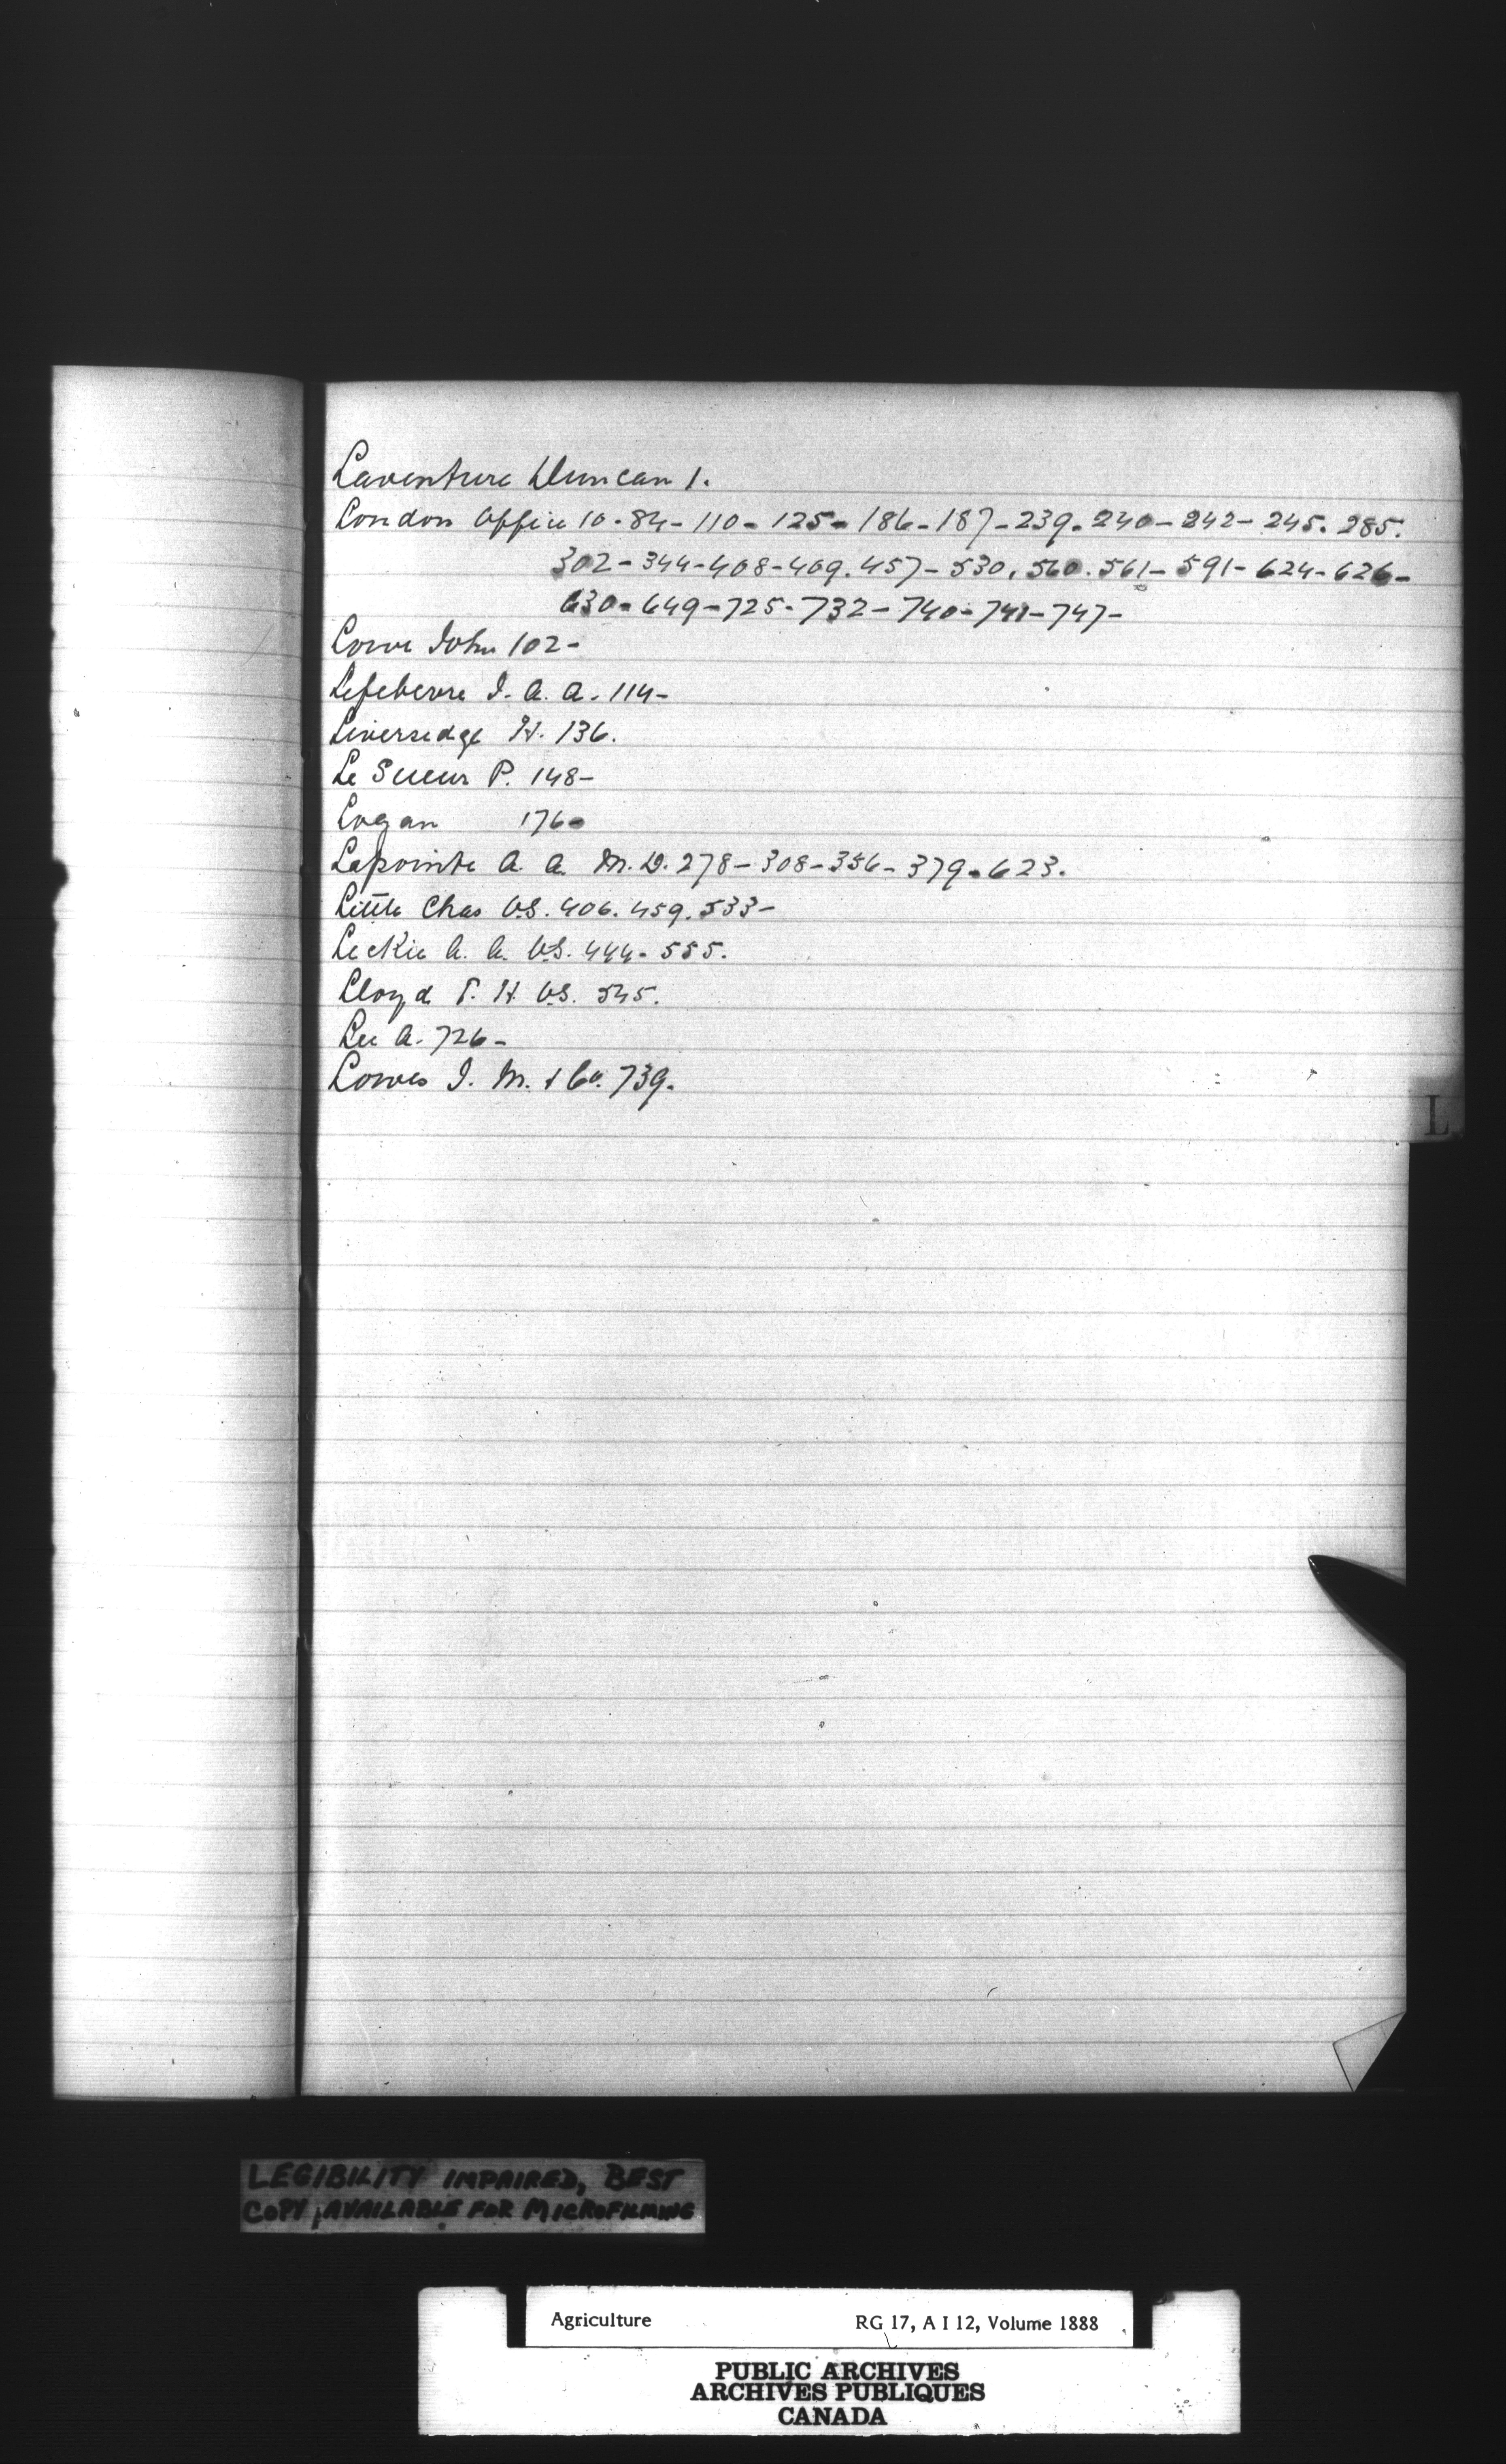 Laventure Duncan 1.
London Office 10-84-110-125-186-187-239.240-242-245.285.
302-344-408-409.457-530.560.561-591-624-626-
630-649-725-732-740-741-747-
Lowe John 102-
Lefebevre J. A. A. 114-
Liversedge H. 136.
Le Sueur P. 148-
Logan 176-
Lapointe A. A. M.D. 278-308-356-379-623.
Little Chas V.S. 406.459.533-
Leckie A. A. V.S. 444-555.
Lloyd T. H. V.S. 545.
Lee A. 726-
Lowes J. M. & Co. 739.
L
LEGIBILITY IMPAIRED, BEST
COPY AVAILABLE FOR MICROFILMING
Agriculture RG 17, A I 12, Volume 1888
PUBLIC ARCHIVES
ARCHIVES PUBLIQUES
CANADA